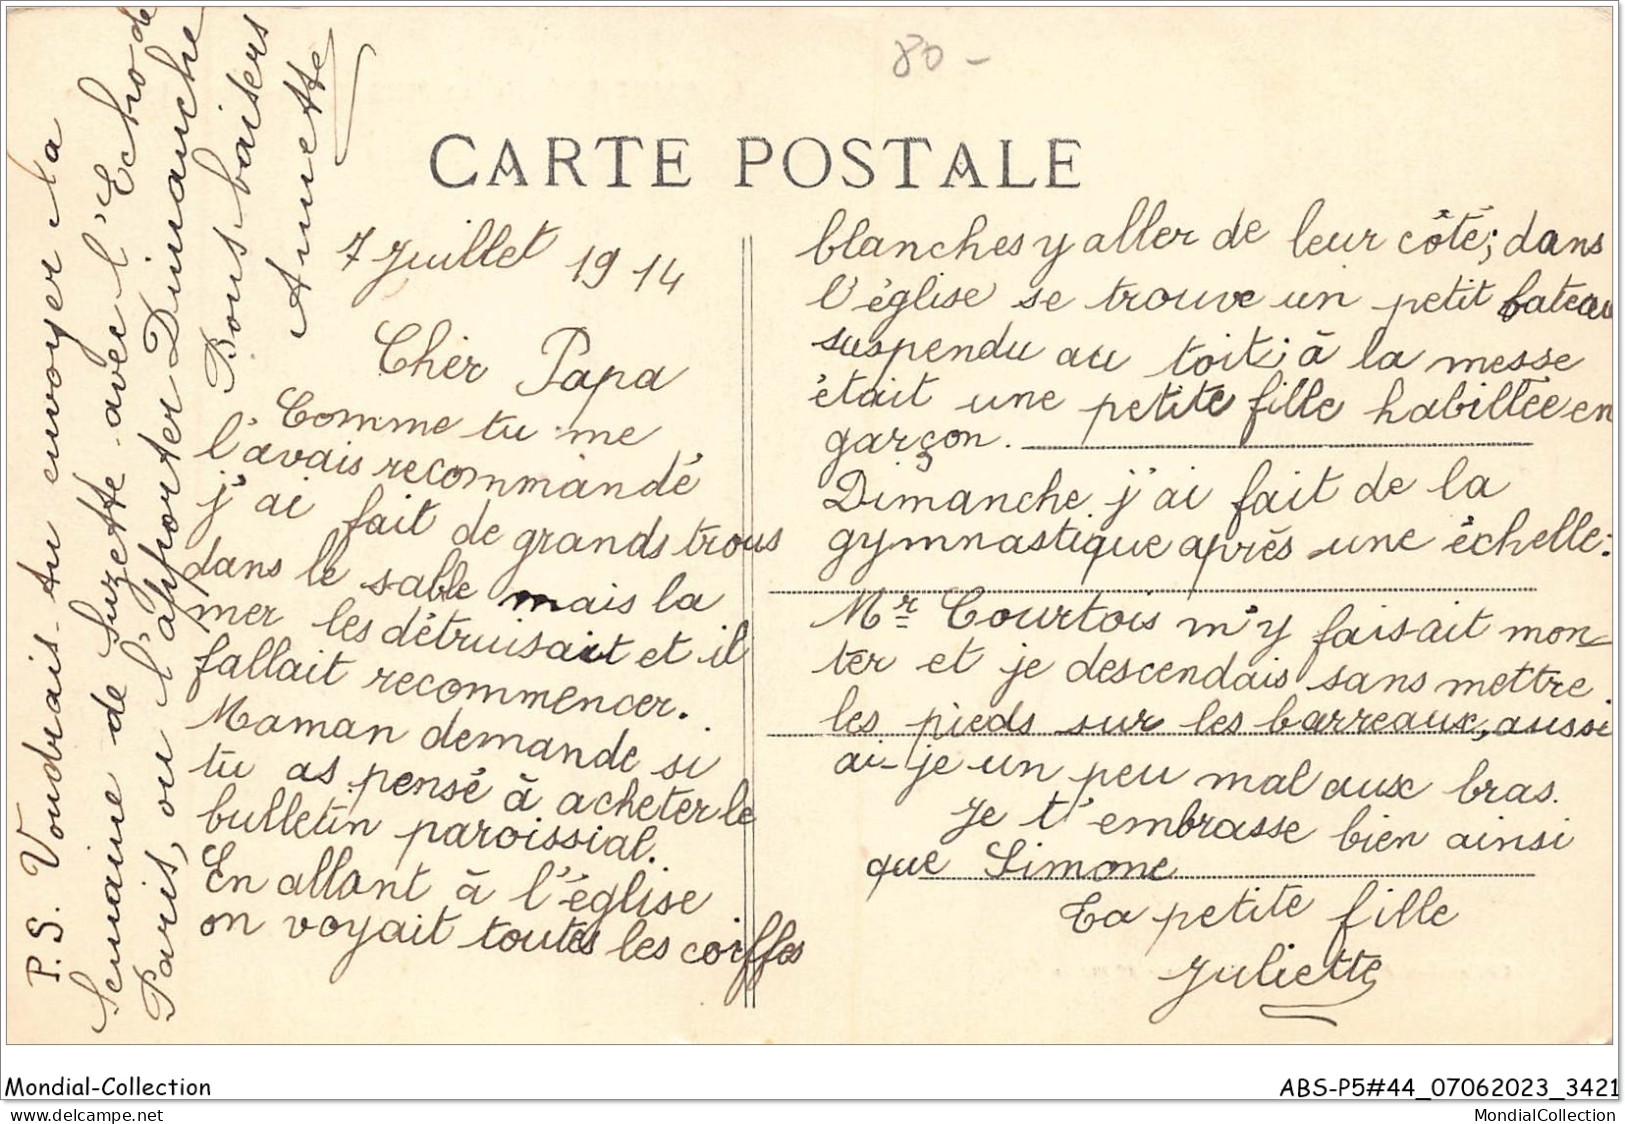 80 -
CARTE POSTALE
7 Juillet 1914
Cher Papa
Comme tu me
l'avais recommandé
j'ai fait de grands trous
dans le sable mais la
mer les détruisait et il
fallait recommencer.
Maman demande si
tu as pensé à acheter le
bulletin paroissial.
En allant à l'église
on voyait toutes les coiffes
blanches y aller de leur côté; dans
l'église se trouve un petit bateau
suspendu au toit; à la messe
était une petite fille habillée en
garçon.
Dimanche j'ai fait de la
gymnastique après une échelle:
Mr Courtois m'y faisait mon-
ter et je descendais sans mettre
les pieds sur les barreaux, aussi
ai-je un peu mal aux bras.
Je t'embrasse bien ainsi
que Simone
Ta petite fille
Juliette
P.S. Voudrais-tu envoyer la
Semaine de Suzette avec l'Echo de
Paris, ou l'apporter Dimanche
Bons baisers
Annette
Mondial-Collection
ABS-P5#44_07062023_3421
www.delcampe.net
MondialCollection